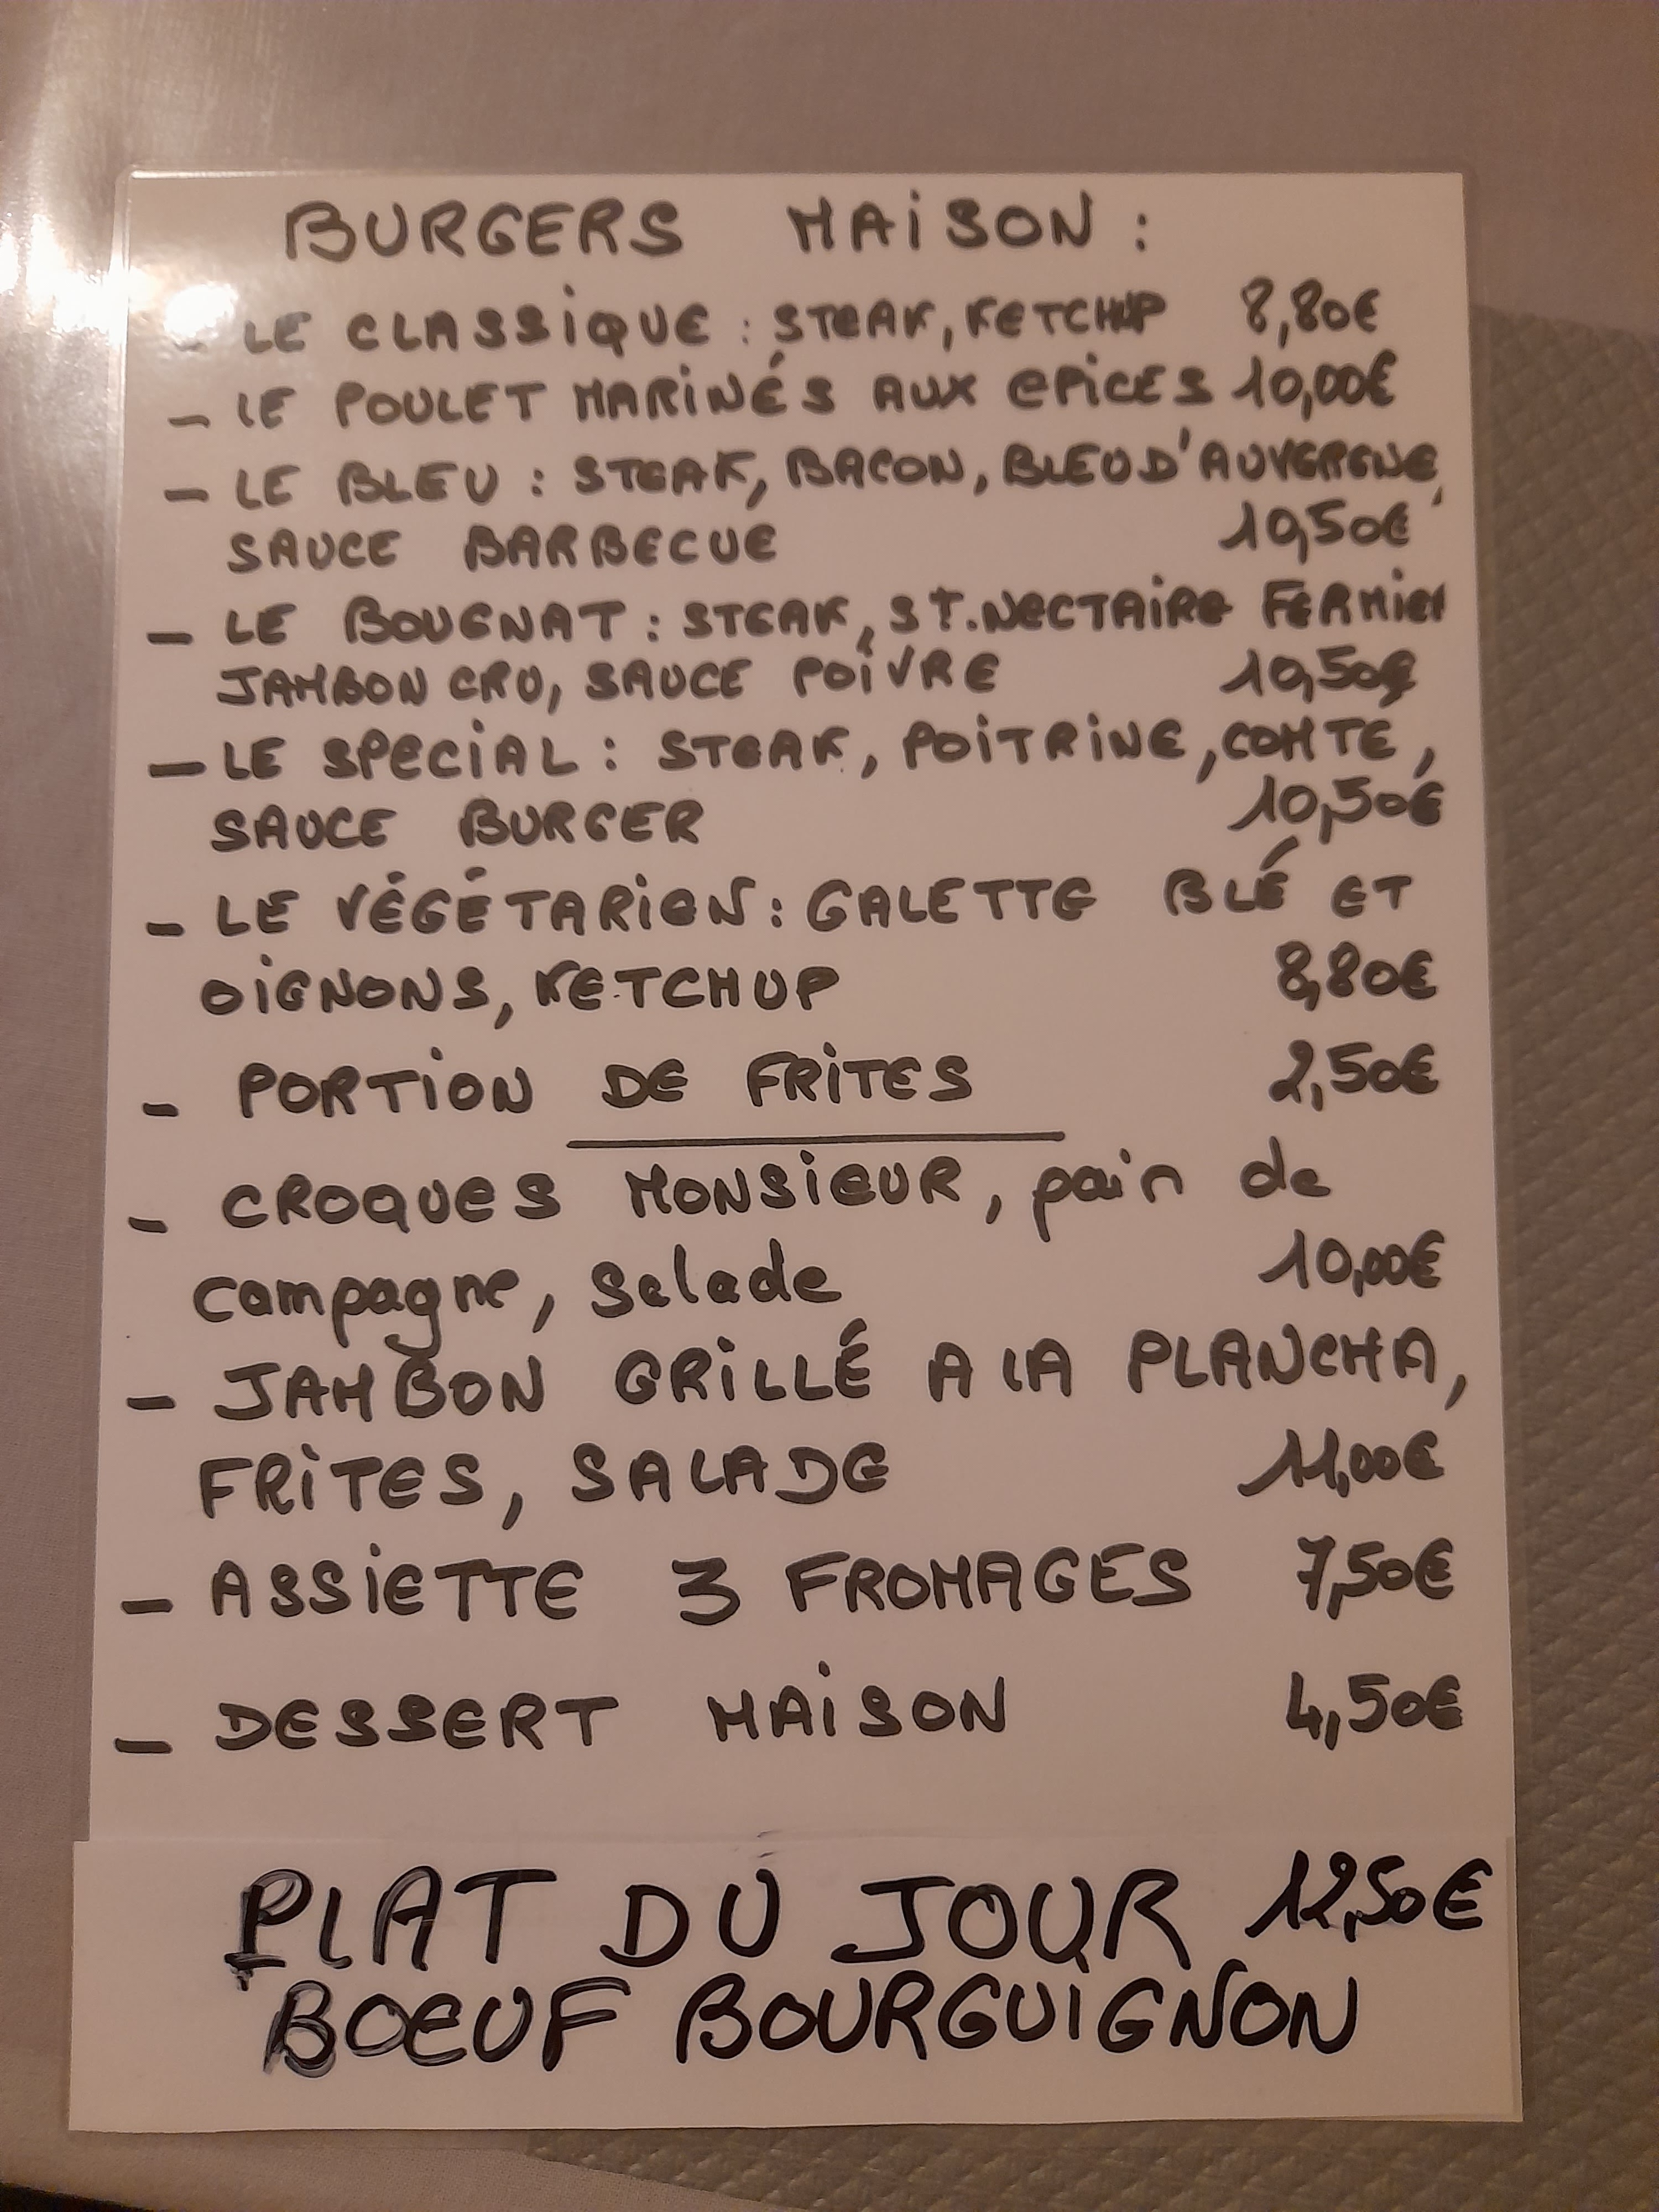 BURGERS MAISON :
- LE CLASSIQUE : STEAK, KETCHUP 8,80€
- LE POULET MARINÉS AUX EPICES 10,00€
- LE BLEU : STEAK, BACON, BLEU D'AUVERGNE,
SAUCE BARBECUE 10,50€
- LE BOUGNAT : STEAK, ST. NECTAIRE FERMIER
JAMBON CRU, SAUCE POIVRE 10,50€
- LE SPECIAL : STEAK, POITRINE, COMTE,
SAUCE BURGER 10,50€
- LE VÉGÉTARIEN : GALETTE BLÉ ET
OIGNONS, KETCHUP 8,80€
- PORTION DE FRITES 2,50€
- CROQUES MONSIEUR, pain de
campagne, Salade 10,00€
- JAMBON GRILLÉ A LA PLANCHA,
FRITES, SALADE 11,00€
- ASSIETTE 3 FROMAGES 7,50€
- DESSERT MAISON 4,50€
PLAT DU JOUR 12,50€
BOEUF BOURGUIGNON